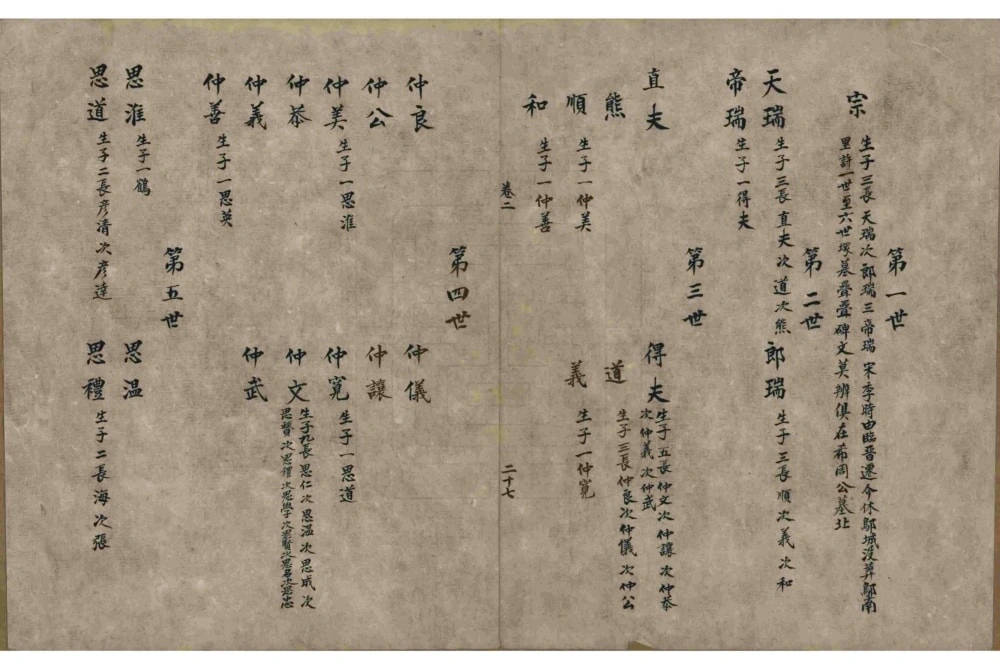 第一世
宗 生子三長天瑞次郎瑞三帝瑞 宋季時由臨晋遷今休鄔城没葬鄔南
里許一世至六世塚墓疊疊碑文莫辨俱在希周公墓北
第二世
天瑞 生子三長直夫次道次熊
郎瑞 生子三長順次義次和
帝瑞 生子一得夫
第三世
直夫
得夫 生子五長仲文次仲讓次仲恭
次仲義次仲武
熊
道 生子三長仲良次仲儀次仲公
順 生子一仲美
義 生子一仲寬
和 生子一仲善
卷二
二十七
第四世
仲良
仲儀
仲公
仲讓
仲美 生子一思淮
仲寬 生子一思道
仲恭
仲文 生子九長思仁次思溫次思成次
思賢次思禮次思學次思賢次思名次思忠
仲義
仲武
仲善 生子一思英
第五世
思淮 生子一鶴
思溫
思道 生子二長彦清次彦達
思禮 生子二長海次張